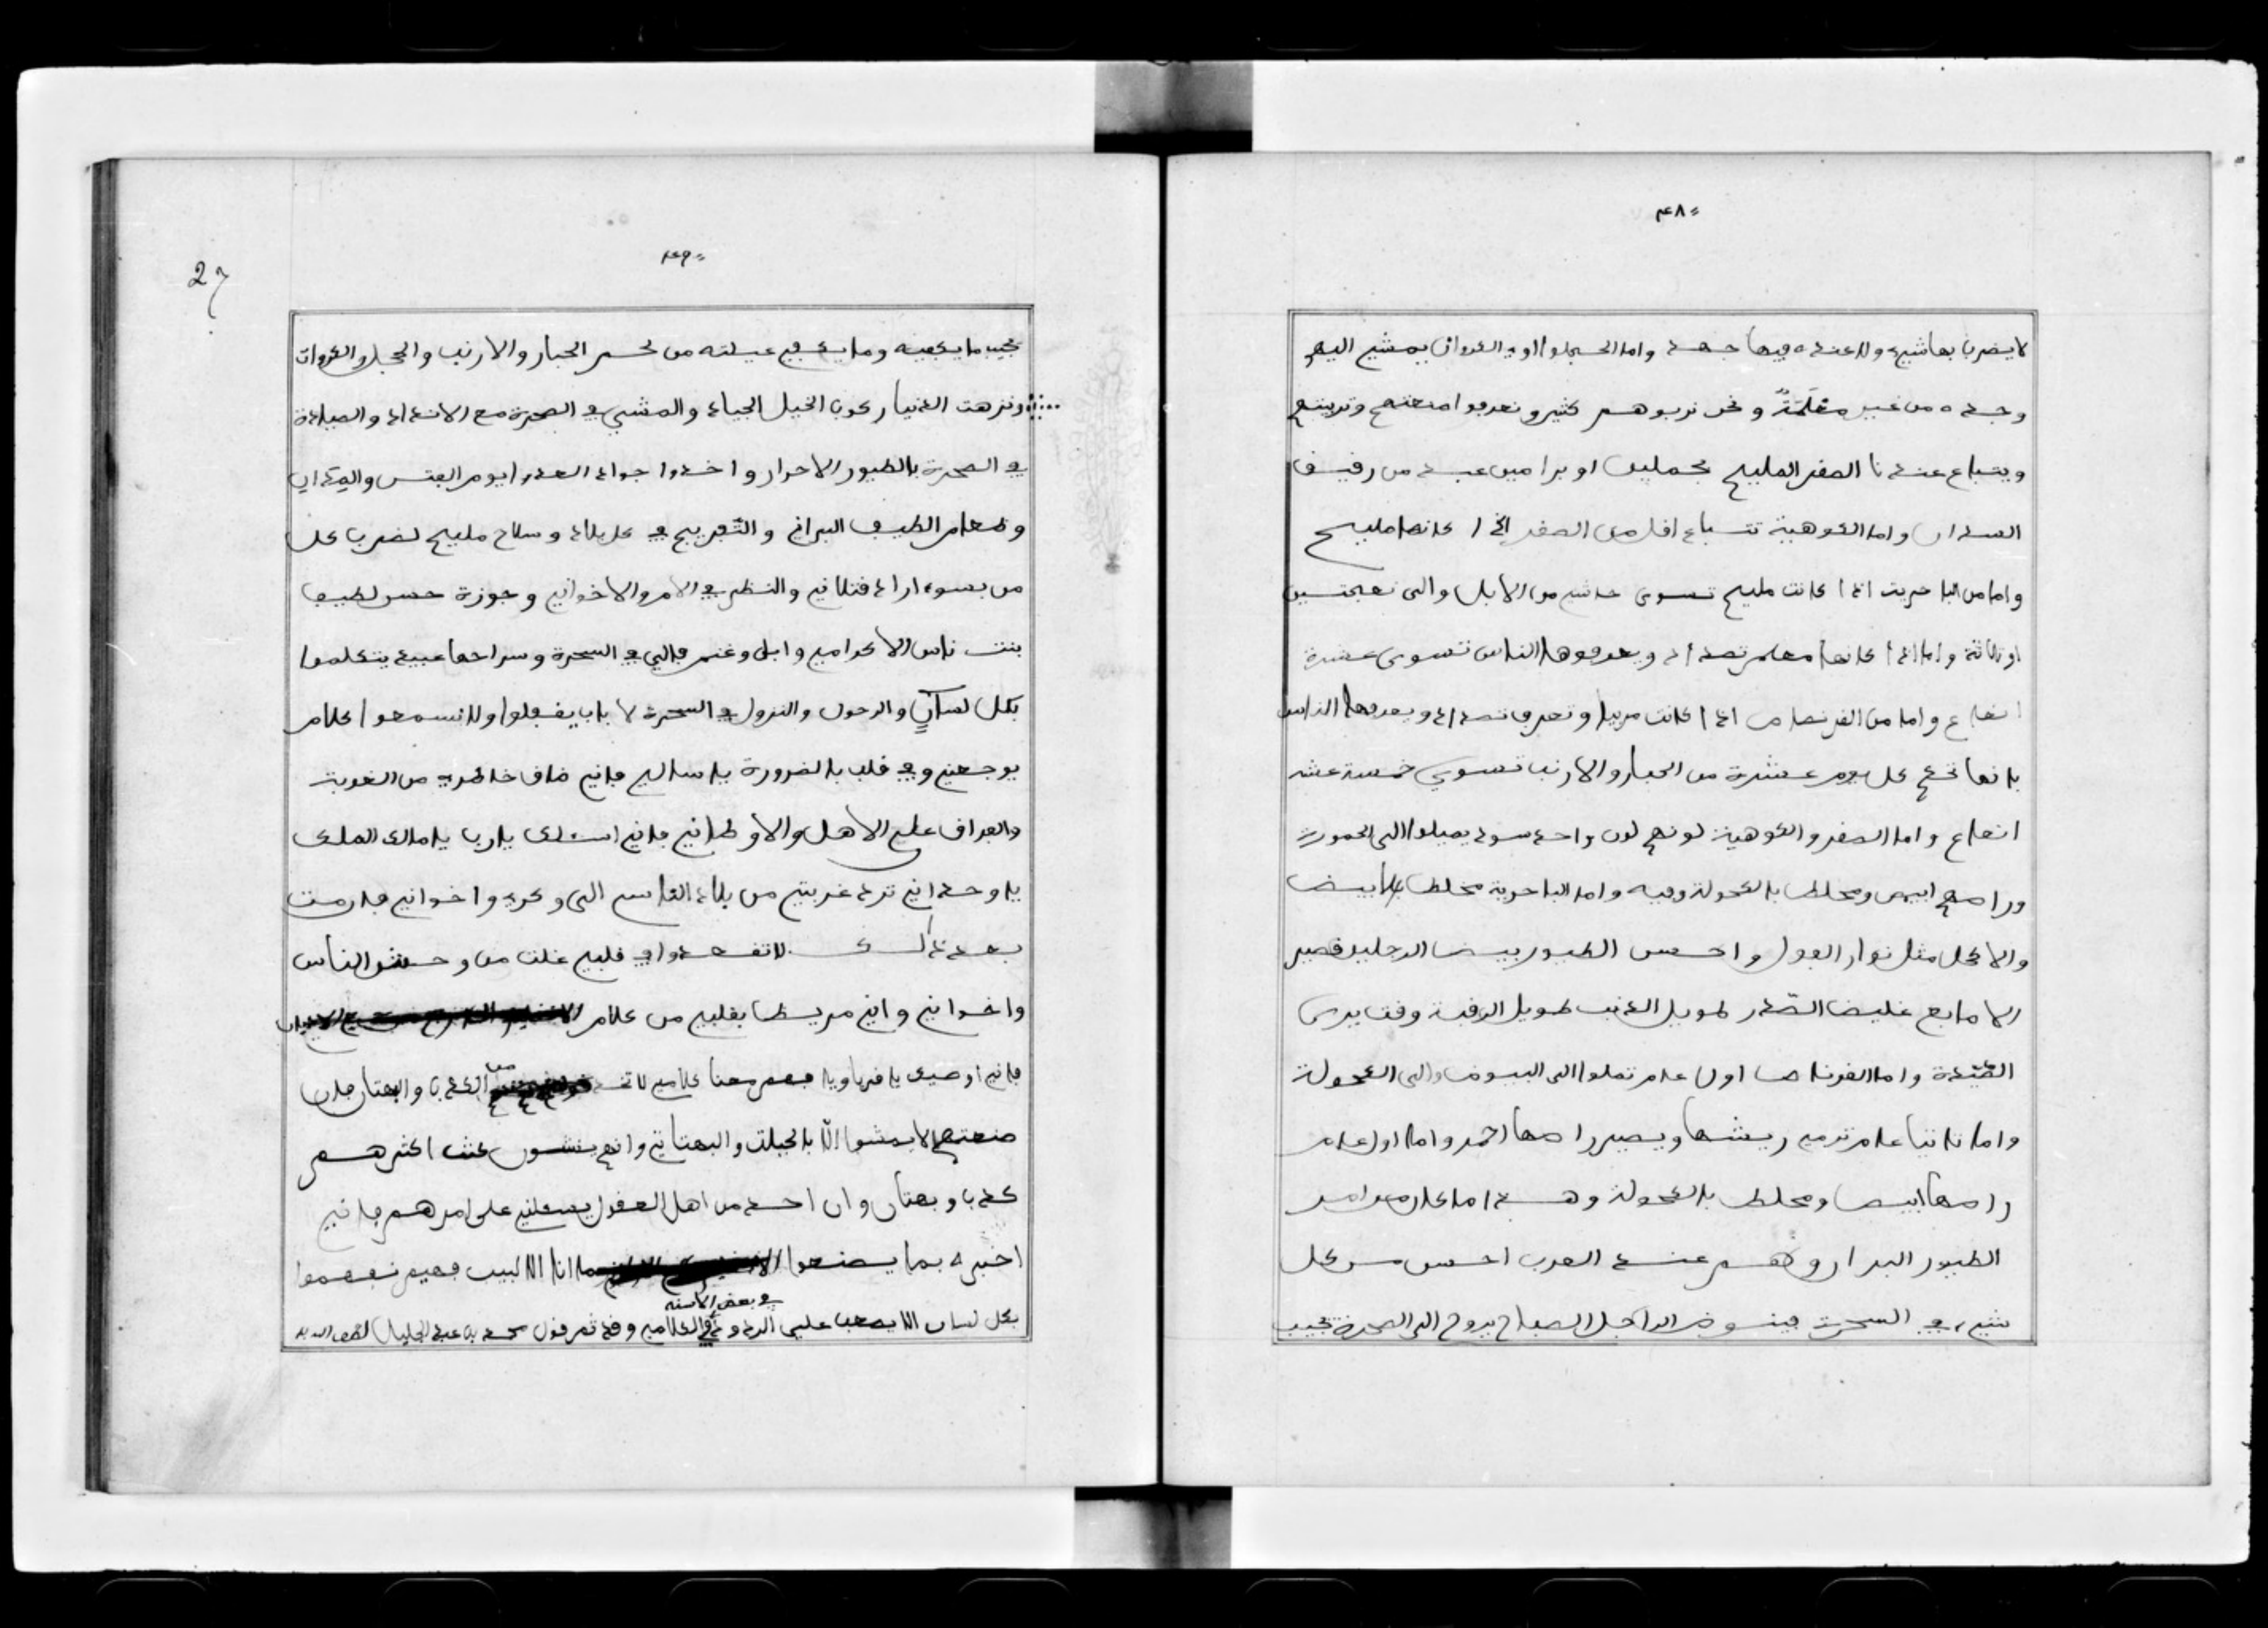 ٤٨
لا يضربا بها شيء ولا عنده فيها جهد واما الحجل او الكروان يمشي اليهم
وحده من غير معلمة ونحن نربوهم كثير ونعرفوا صنعتهم وتربيتهم
ويتباع عندنا الصقر المليح بجملين او براسين عبيد من رقيق
السودان واما الكوهية تتباع اقل من الصقر اذا كانها مليح
واما من البا حرية اذا كانت مليح تسوى حاشي من الابل والى نعجتين
او ثلاثة واما اذا كانها معلم تصداد ويعرفوها الناس تسوى عشرة
انعاج واما من الفرنصاص اذا كانت مربيا وتعرف تصداد ويعرفها الناس
بانها تحكم كل يوم عشرة من الحبار والارنب تسوى خمسة عشر
انعاج واما الصقر والكوهية لونهم لون واحد سود يميلوا الى الحمورية
وراسهم ابيض ومخلط بالكحولة وفيه واما الباحرية مخلط بالابيض
والاكحل مثل نوار الفول واحسن الطيور بيض الرجلين قصير
الاصابع غليض الصدر طويل الذنب طويل الرقبة وقت يرى
الصيدة واما الفرنصاص اول عام تملوا الى البيوض والى الكحولة
واما ثانيا عام ترمي ريشها ويصير راسها احمر واما اول عام
راسها ابيض ومخلط بالكحولة وهذا ما كان من امر
الطيور البرار وهم عند العرب احسن من كل
شيء في السحرة فينوض الراجل الصباح يروح الى الصحرة يجيب
٤٩
27
يجيب ما يكفيه وما يكفي عيلته من لحم الحبار والارنب والحجل والكروان
ونزهت الدنيا ركوب الخيل الجياد والمشي في الصحرة مع الانداد والصيادة
في الصحرة بالطيور الاحرار واخذوا جواد العدو يوم الفتس والميدان
وطعام الطيف البراني والتفريج في كل بلاد وسلاح مليح لضرب كل
من بسوء اراد قتلاني والنظر في الام والاخواني وجوزة حسن لطيف
بنت ناس الاكرامي وابل وغنم مالي في السحرة وسراحها عبيد يتكلموا
بكل لسان والرحول والنزول في السحرة لا باب يقفلوا ولا نسمعوا كلام
يوجعني وفي قلب بالضرورة يا سالي فاني ضاق خاطري من الغربة
والفراق على الاهل والاوطاني فاني اسئلك يا رب يا مالك الملك
يا وحداني ترد غربتي من بلاد الناس الى وكري واخواني فلا رمت
بعد ذلك لا تفسدوا في قلبي غلت من وحش الناس
واخواني واني مريضا بقلبي من كلام
فاني اوصيك يا قريا ويا فهم معنا كلامي لا تخذ من الكذبا والبهتان فان
صنعتهم لا يمشوا الا بالحيلة والبهتاني وانهم ينسون عنت اكثرهم
كذبا وبهتان وان احد من اهل العقول يسئلني على امرهم فاني
اخبره بما يصنعوا ما انا الا لبيب فهيم نفهموا
في بعض الاسنه
بكل لسان الا يصعب على الرد في الكلامي وقد تم قول محمد بن عبد الجليل لطف الله به